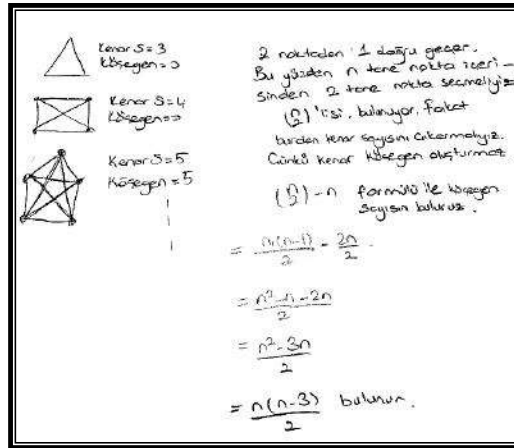 Kenar S=3
Köşegen=0
Kenar S=4
Köşegen=
Kenar S=5
Köşegen=5
2 noktadan 1 doğru geçer.
Bu yüzden n tane nokta içeri-
sinden 2 tane nokta seçmeliyiz
(n 2) 'lisi bulunuyor. Fakat
burdan kenar sayısını çıkarmalıyız.
Çünkü kenar köşegen oluşturmaz
(n 2) - n formülü ile köşegen
sayısın buluruz.
= n(n-1)/2 - 2n/2
= n²-n-2n/2
= n²-3n/2
= n(n-3)/2 bulunur.